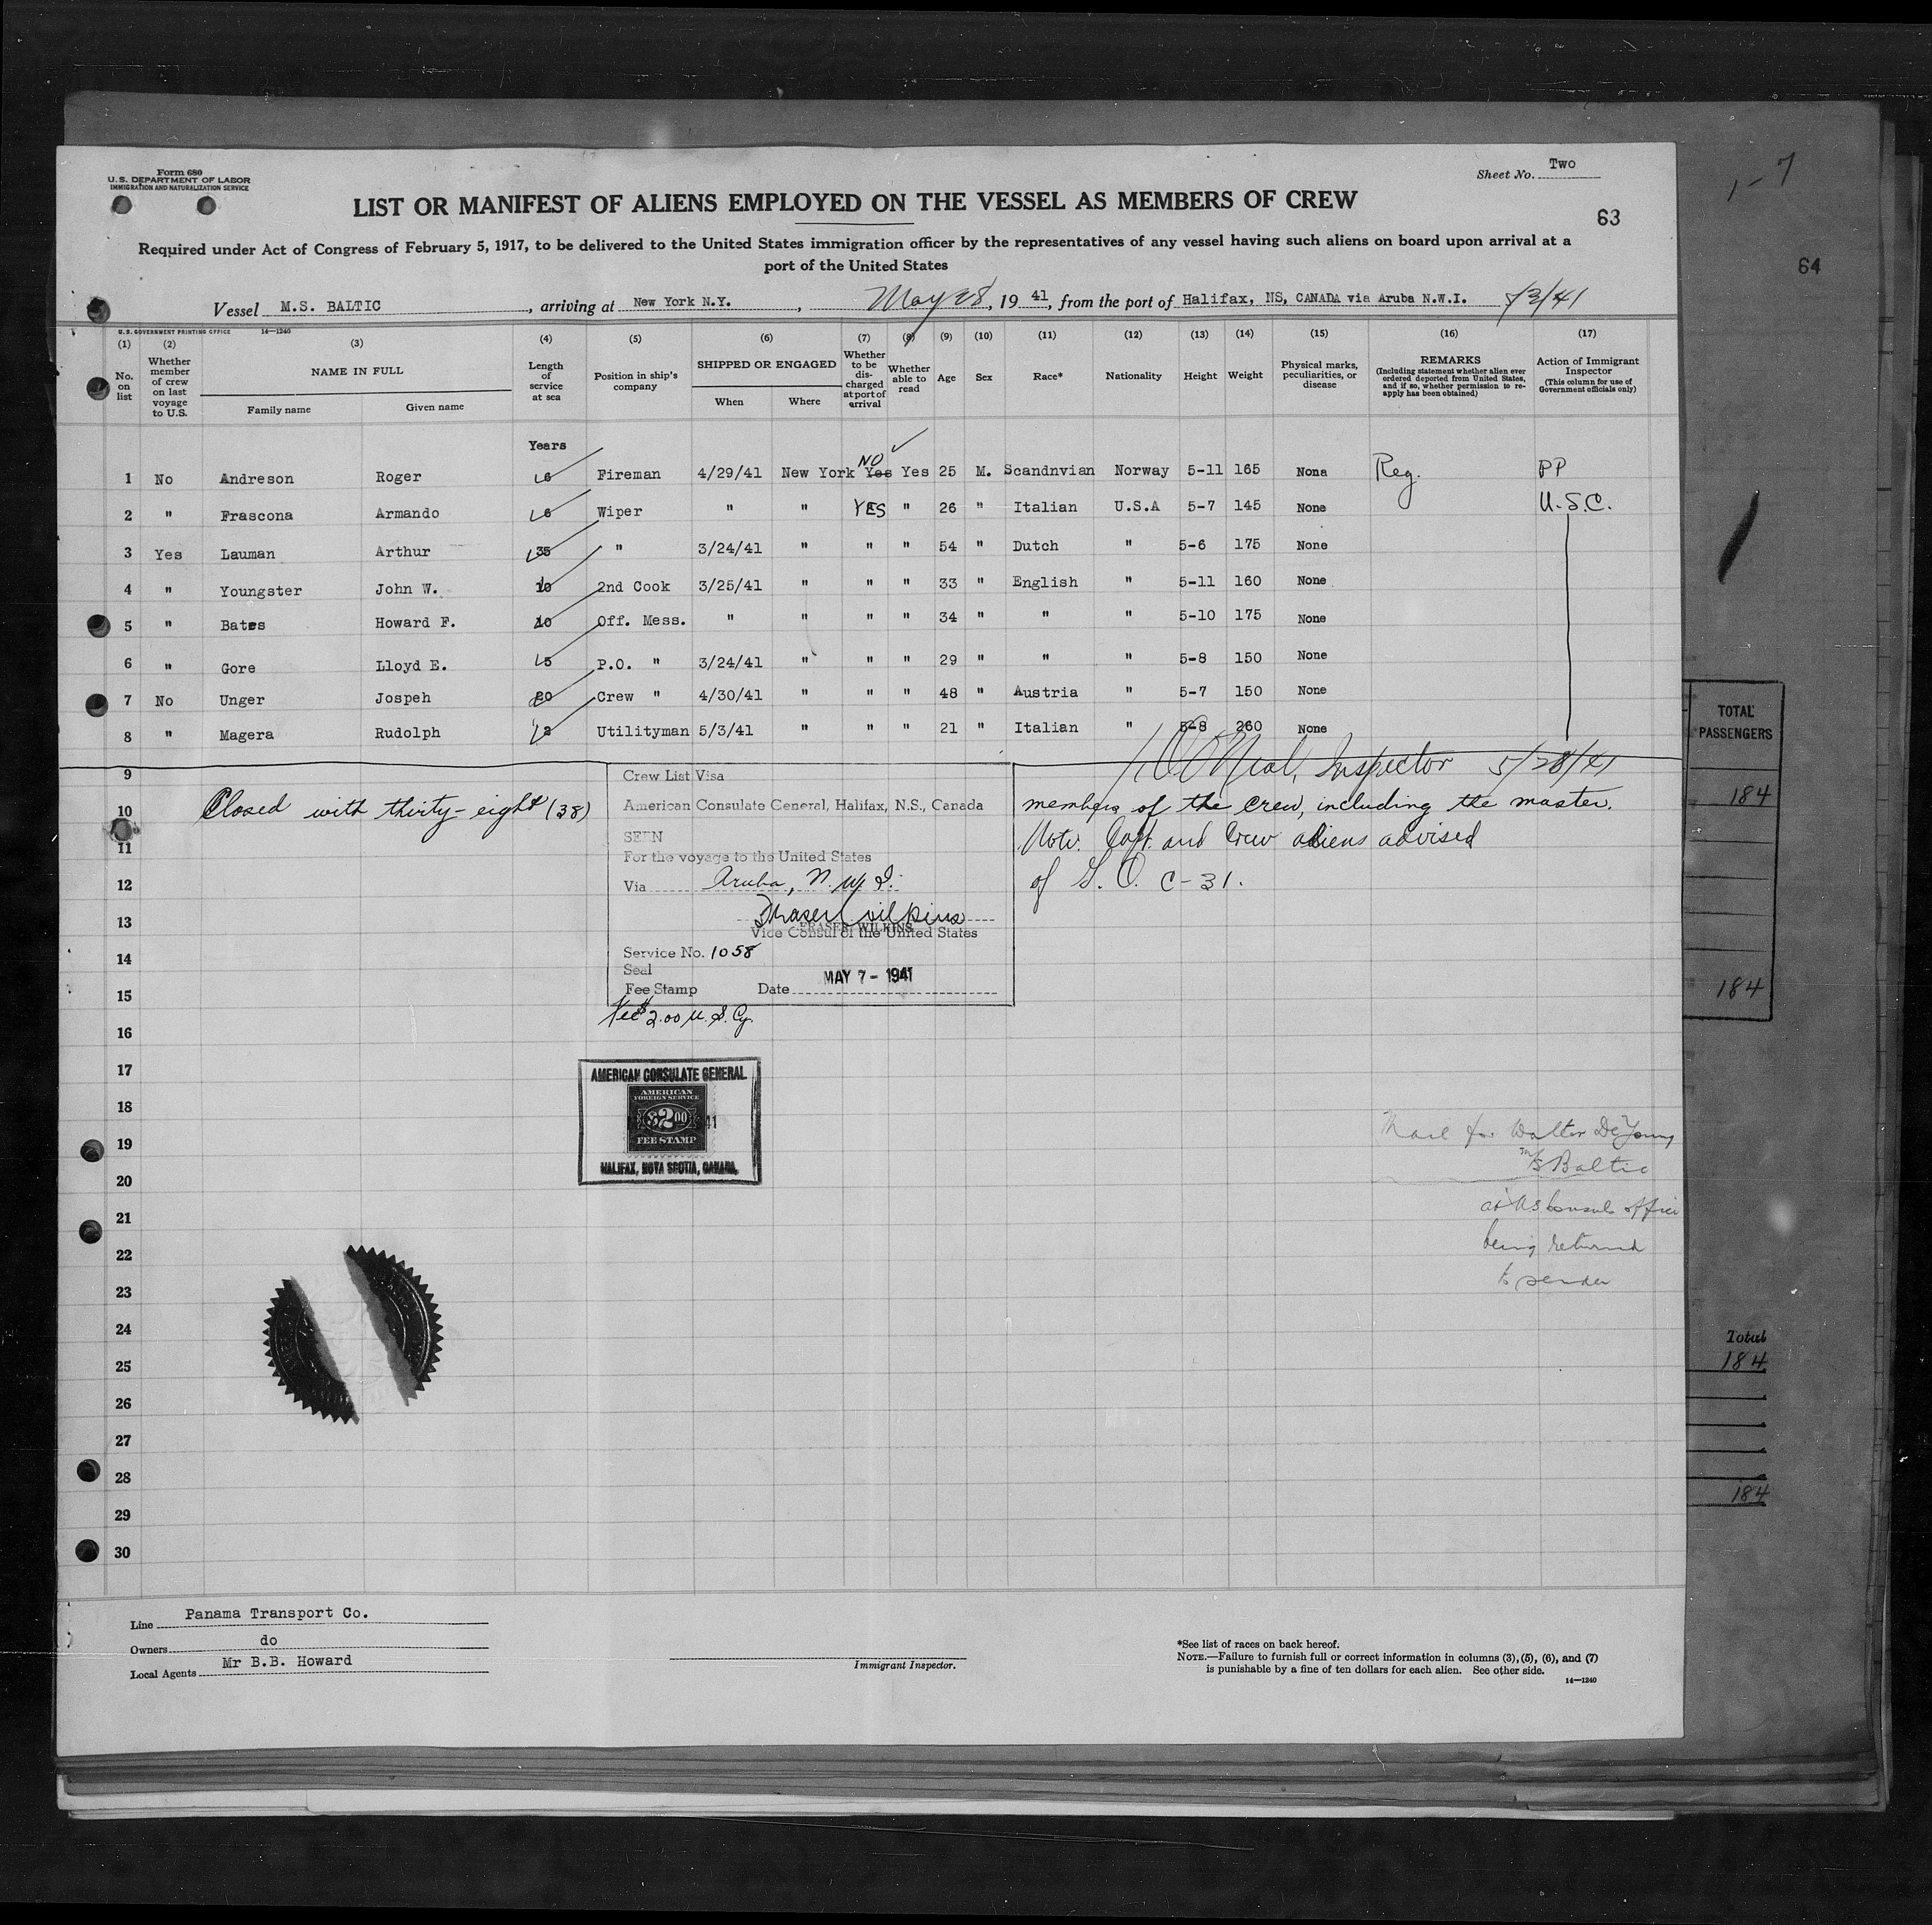 Form 680
U. S. DEPARTMENT OF LABOR
IMMIGRATION AND NATURALIZATION SERVICE
Sheet No. Two
LIST OR MANIFEST OF ALIENS EMPLOYED ON THE VESSEL AS MEMBERS OF CREW
63
Required under Act of Congress of February 5, 1917, to be delivered to the United States immigration officer by the representatives of any vessel having such aliens on board upon arrival at a
port of the United States
Vessel M.S. BALTIC, arriving at New York N.Y., May 28, 19 41, from the port of Halifax, NS, CANADA via Aruba N.W.I.
U. S. GOVERNMENT PRINTING OFFICE 14—1240
(1) (2) (3) (4) (5) (6) (7) (8) (9) (10) (11) (12) (13) (14) (15) (16) (17)
No. on list
Whether member of crew on last voyage to U.S.
NAME IN FULL
Family name Given name
Length of service at sea
Position in ship's company
SHIPPED OR ENGAGED
When Where
Whether to be discharged at port of arrival
Whether able to read
Age
Sex
Race*
Nationality
Height
Weight
Physical marks, peculiarities, or disease
REMARKS
(Including statement whether alien ever ordered deported from United States, and if so, whether permission to reapply has been obtained)
Action of Immigrant Inspector
(This column for use of Government officials only)
Years
NO
1 No Andreson Roger 6 Fireman 4/29/41 New York Yes Yes 25 M. Scandnvian Norway 5-11 165 Nona Reg. PP
2 " Frascona Armando 6 Wiper " " YES " 26 " Italian U.S.A 5-7 145 None U.S.C.
3 Yes Lauman Arthur 35 " 3/24/41 " " " 54 " Dutch " 5-6 175 None
4 " Youngster John W. 10 2nd Cook 3/25/41 " " " 33 " English " 5-11 160 None
5 " Bates Howard F. 10 Off. Mess. " " " " 34 " " " 5-10 175 None
6 " Gore Lloyd E. 5 P.O. " 3/24/41 " " " 29 " " " 5-8 150 None
7 No Unger Jospeh 20 Crew " 4/30/41 " " " 48 " Austria " 5-7 150 None
8 " Magera Rudolph 2 Utilityman 5/3/41 " " " 21 " Italian " 5-8 260 None
O'Neal, Inspector 5/28/41
9
10 Closed with thirty-eight (38) members of the crew, including the master.
Note. Capt. and Crew aliens advised
of G. O. C-31.
Crew List Visa
American Consulate General, Halifax, N.S., Canada
SEEN
For the voyage to the United States
Via Aruba, N.W.I.
Fraser Wilkins
FRASER WILKINS
Vice Consul of the United States
Service No. 1058
Seal
Fee Stamp Date MAY 7 - 1941
Fee $2.00 U.S. Cy.
11
12
13
14
15
16
17
18
19
20
21
22
23
24
25
26
27
28
29
30
AMERICAN CONSULATE GENERAL
AMERICAN
FOREIGN SERVICE
$2.00
FEE STAMP
HALIFAX, NOVA SCOTIA, CANADA.
Mail for Walter DeYoung
M/S Baltic
at U.S. Consuls office
being returned
to sender
Line Panama Transport Co.
Owners do
Local Agents Mr B.B. Howard
Immigrant Inspector.
*See list of races on back hereof.
NOTE.—Failure to furnish full or correct information in columns (3), (5), (6), and (7)
is punishable by a fine of ten dollars for each alien. See other side.
14—1240
1-7
64
TOTAL
PASSENGERS
184
184
Total
184
184